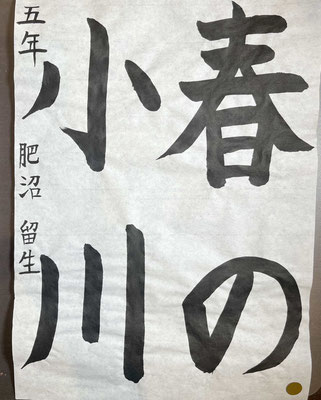 春の
小川
五年 肥沼 留生